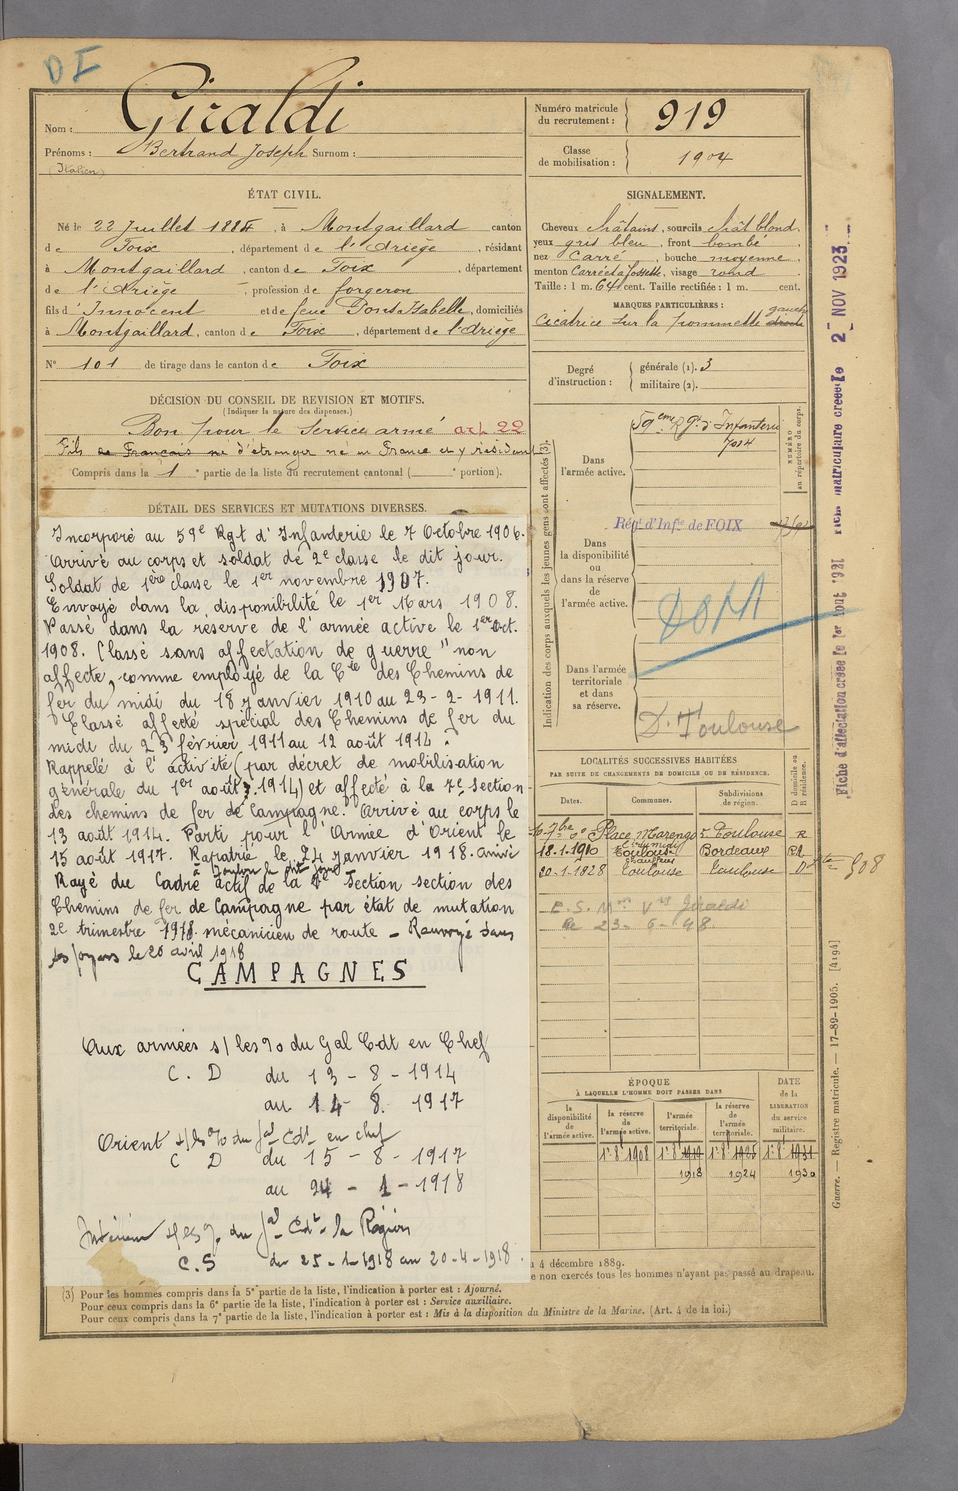 DI
Nom : Giraldi
Prénoms : Bertrand Joseph Surnom :
(Italien)
ÉTAT CIVIL.
Né le 22 Juillet 1884, à Montgaillard canton
de Foix, département de l'Ariège, résidant
à Montgaillard, canton de Foix, département
de l'Ariège, profession de forgeron
fils d'Innocent et de feue Pont Isabelle, domiciliés
à Montgaillard, canton de Foix, département de l'Ariège
N° 101 de tirage dans le canton de Foix
DÉCISION DU CONSEIL DE REVISION ET MOTIFS.
(Indiquer la nature des dispenses.)
Bon pour le Service armé art 22
Fils de Français né d'étranger né en France et y résidant
Compris dans la 1e partie de la liste du recrutement cantonal ( e portion).
DÉTAIL DES SERVICES ET MUTATIONS DIVERSES.
Incorporé au 59e Rgt d'Infanterie le 7 Octobre 1906.
Arrivé au corps et soldat de 2e classe le dit jour.
Soldat de 1ère classe le 1er novembre 1907.
Envoyé dans la disponibilité le 1er Mars 1908.
Passé dans la réserve de l'armée active le 1er Oct.
1908. Classé sans affectation de guerre "non
affecté, comme employé de la Cie des Chemins de
fer du midi du 18 janvier 1910 au 23-2-1911.
Classé affecté spécial des Chemins de fer du
midi du 23 février 1911 au 12 août 1914.
Rappelé à l'activité (par décret de mobilisation
générale du 1er août 1914) et affecté à la 7e Section
des chemins de fer de Campagne. Arrivé au corps le
13 août 1914. Parti pour l'Armée d'Orient le
15 août 1917. Rapatrié le 24 janvier 1918. arrivé
à Toulon le dit jour
Rayé du Cadre actif de la 7e Section section des
Chemins de fer de Campagne par état de mutation
2e trimestre 1918. mécanicien de route - Renvoyé dans
ses foyers le 20 avril 1918
CAMPAGNES
Aux armées s/ les % du Gal Cdt en Chef
C. D du 13 - 8 - 1914
au 14 - 8. 1917
Orient s/ les % du Gal Cdt en chef
C D du 15 - 8 - 1917
au 24 - 1 - 1918
Intérieur s/ les % du Gal Cdt la Région
C.S du 25-1-1918 au 20-4-1918.
(3) Pour les hommes compris dans la 5e partie de la liste, l'indication à porter est : Ajourné.
Pour ceux compris dans la 6e partie de la liste, l'indication à porter est : Service auxiliaire.
Pour ceux compris dans la 7e partie de la liste, l'indication à porter est : Mis à la disposition du Ministre de la Marine. (Art. 4 de la loi.)
Numéro matricule du recrutement : 919
Classe de mobilisation : 1904
SIGNALEMENT.
Cheveux châtains, sourcils chât blond,
yeux gris bleu, front bombé,
nez Carré, bouche moyenne,
menton Carré et à fossette, visage rond
Taille : 1 m. 64 cent. Taille rectifiée : 1 m. cent.
MARQUES PARTICULIÈRES :
Cicatrice sur la pommette droite
gauche
Degré d'instruction : générale (1). 3
militaire (2).
Indication des corps auxquels les jeunes gens sont affectés (3).
NUMÉRO au répertoire du corps.
Dans l'armée active.
59eme Rgt d'Infanterie
7014
Régt d'Infie de FOIX
Dans la disponibilité ou dans la réserve de l'armée active.
DOM
Dans l'armée territoriale et dans sa réserve.
D. Toulouse
LOCALITÉS SUCCESSIVES HABITÉES
PAR SUITE DE CHANGEMENTS DE DOMICILE OU DE RÉSIDENCE.
Dates. Communes. Subdivisions de région. D domicile ou R résidence.
Place Marengo 5 Toulouse R
18.1.1910 Toulouse Bordeaux
20-1-1928 Toulouse Toulouse D
908
E.S. Mme Vve Giraldi
le 23-6-48.
ÉPOQUE
À LAQUELLE L'HOMME DOIT PASSER DANS
DATE de la LIBÉRATION du service militaire.
la disponibilité de l'armée active. la réserve de l'armée active. l'armée territoriale. la réserve de l'armée territoriale.
1918 1924 1930
4 décembre 1889.
e non exercés tous les hommes n'ayant pas passé au drapeau.
Fiche matriculaire créée le 2 NOV 1923
Fiche d'affectation créée le 1er Aout 1921
Guerre. — Registre matricule. — 17-89-1905. [4194]